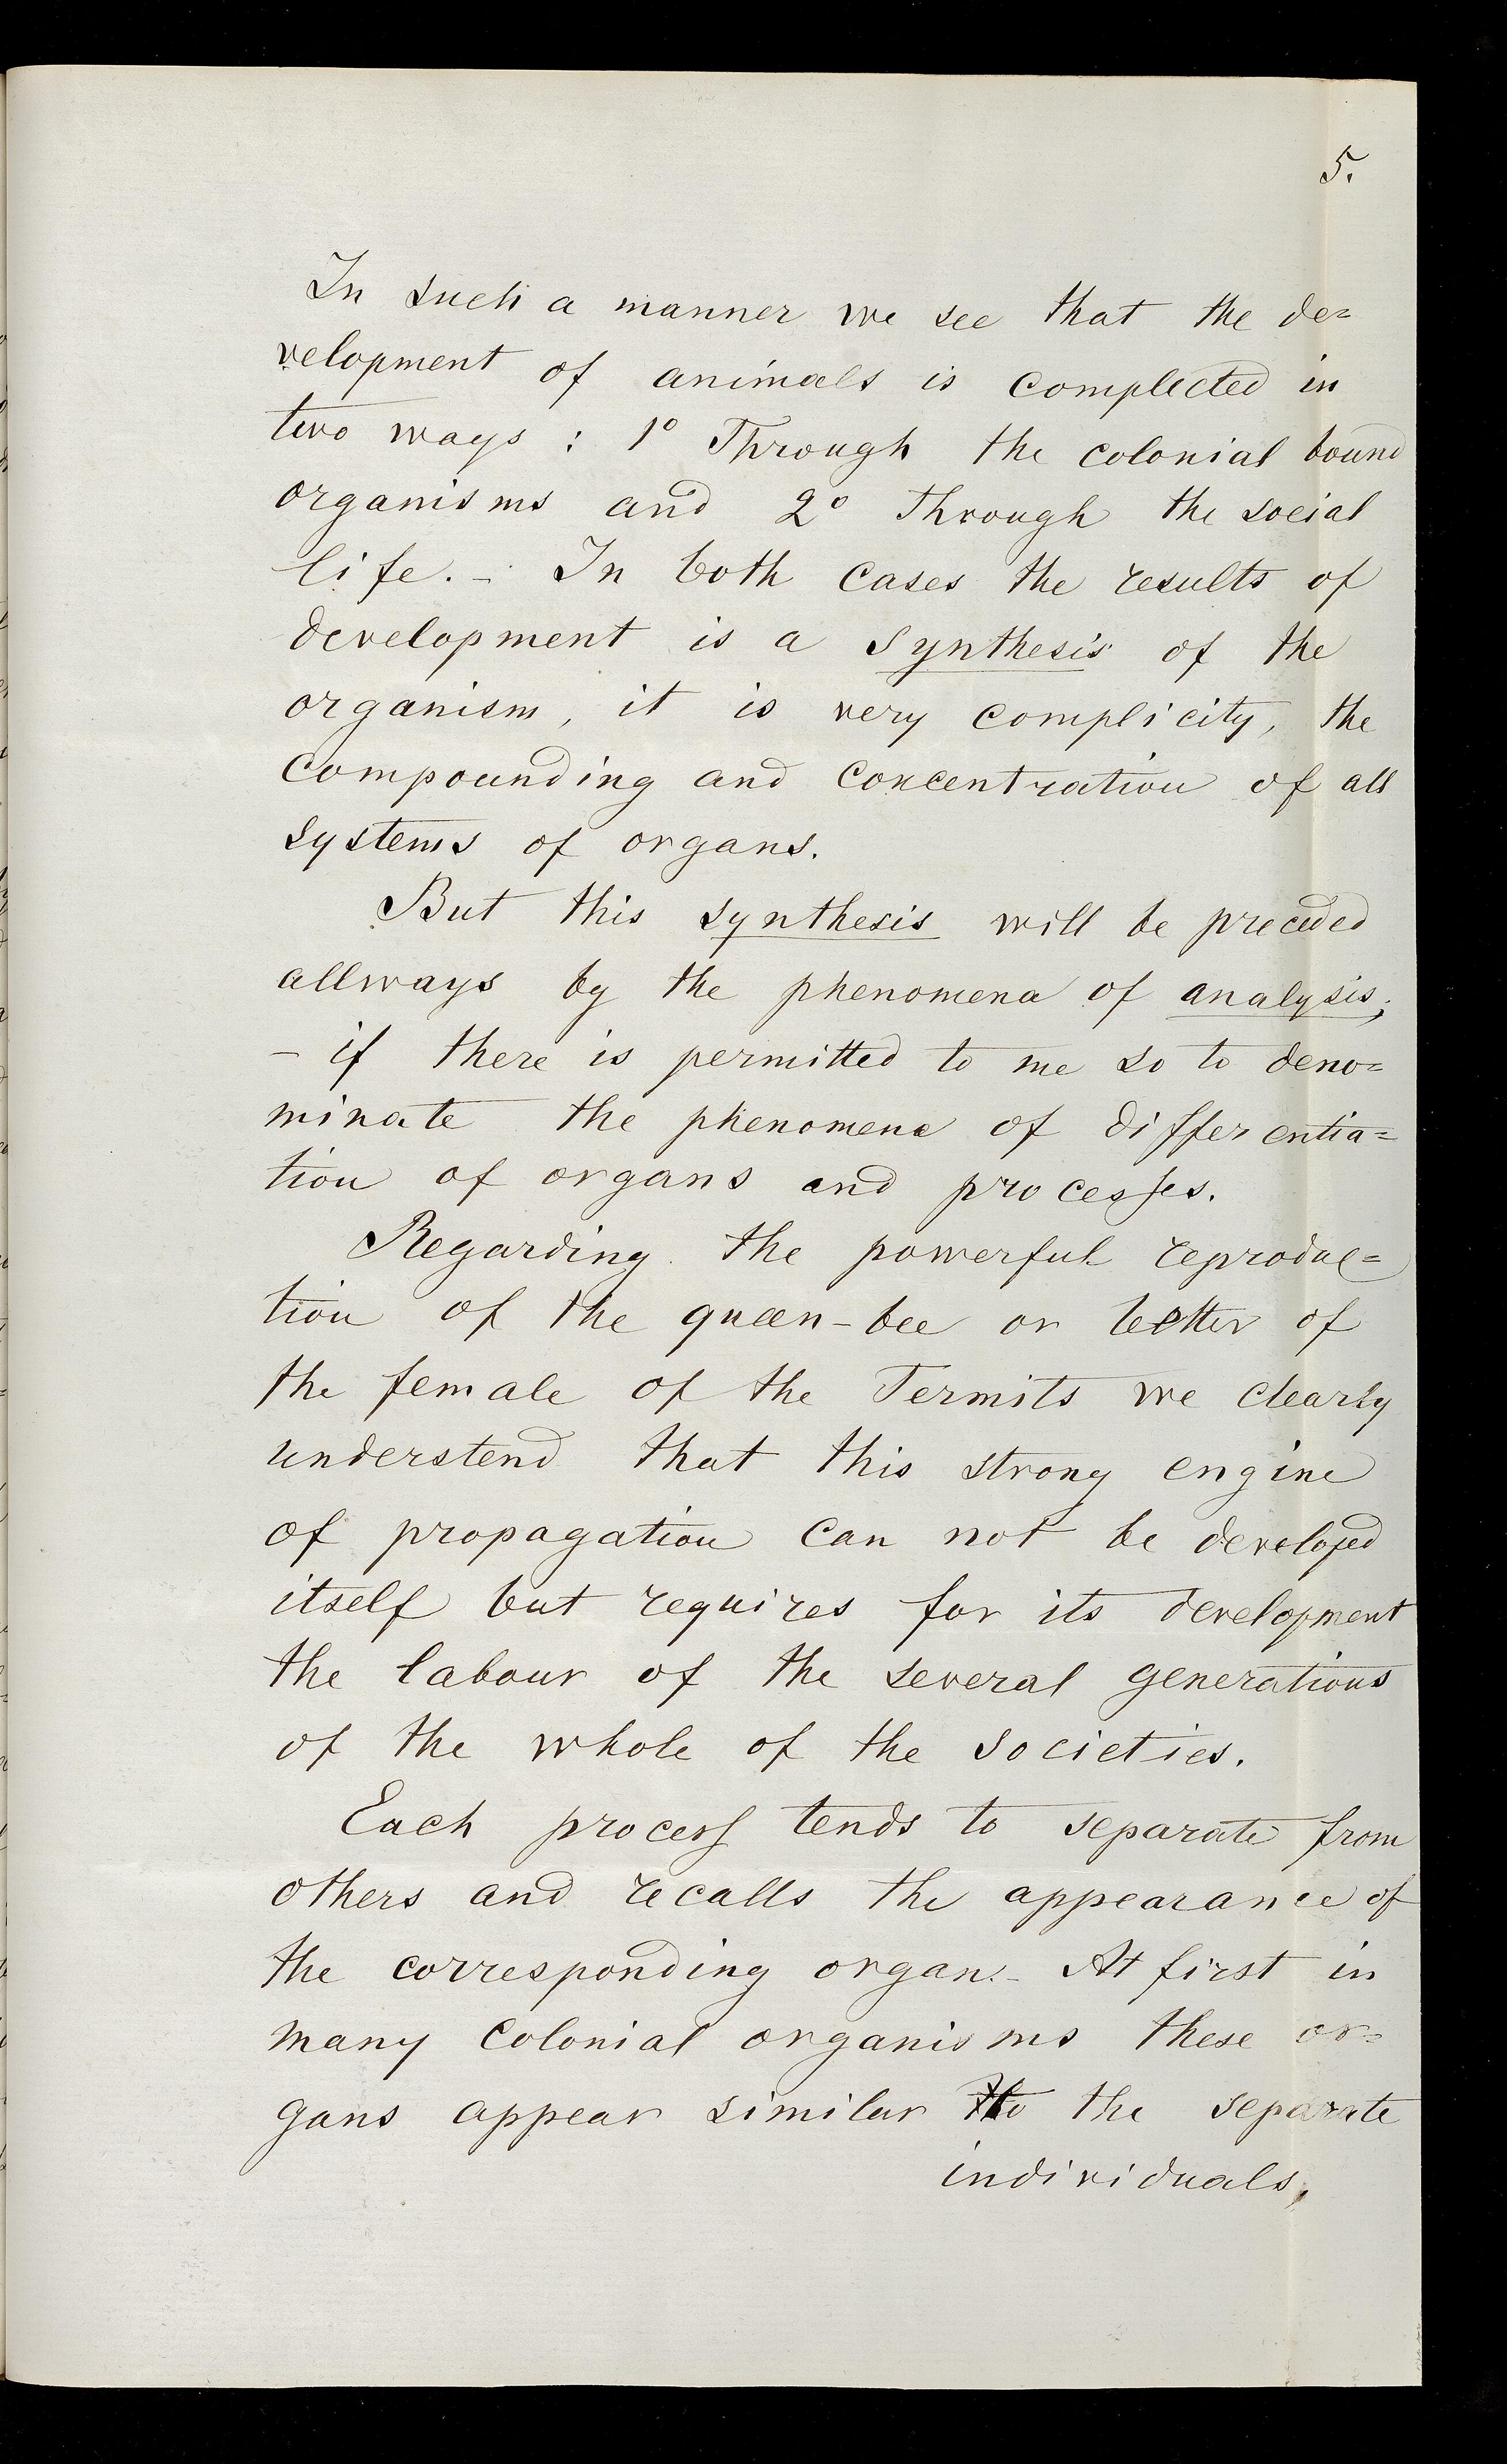 5.
In such a manner we see that the de=
velopment of animals is complected in
two ways : 1° Through the colonial bound
organisms and 2° Through the social
life. – In both cases the results of
development is a synthesis of the
organism, it is very complicity, the
compounding and concentration of all
systems of organs.
But this synthesis will be preceded
allways by the phenomena of analysis;
– if there is permitted to me so to deno=
minate the phenomena of differentia=
tion of organs and processes.
Regarding the powerful reproduc=
tion of the queen-bee or better of
the female of the Termits we clearly
understend that this strong engine
of propagation can not be developed
itself but requires for its development
the labour of the several generations
of the whole of the societies.
Each process tends to separate from
others and recalls the appearance of
the corresponding organ. – At first in
many colonial organisms these or=
gans appear similar to the separate
individuals,